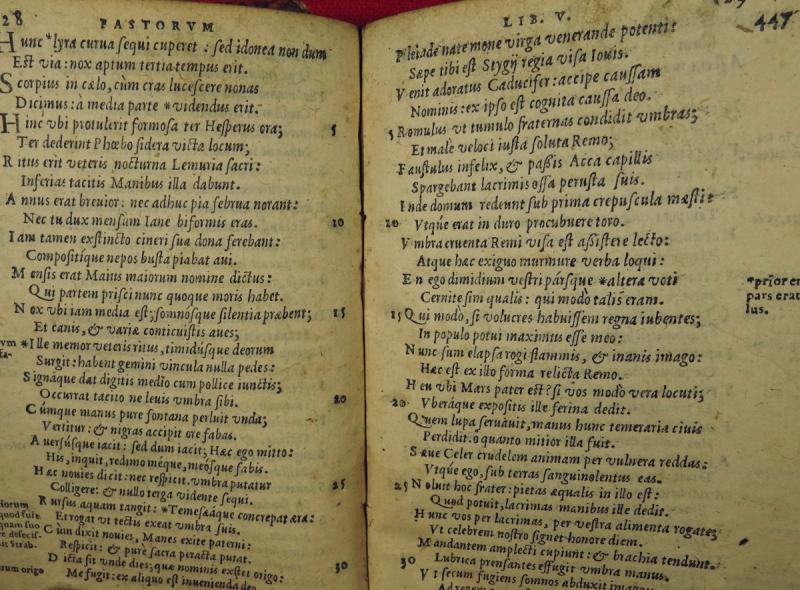 28 PASTORVM
Hunc *lyra curua sequi cuperet : sed idonea non dum
Est via: nox aptum tertia tempus erit.
Scorpius in cælo, cùm cras lucescere nonas
Dicimus: à media parte *videndus erit.
Hinc vbi protulerit formosa ter Hesperus ora; 5
Ter dederint Phœbo sidera victa locum;
Ritus erit veteris nocturna Lemuria sacri:
Inferias tacitis Manibus illa dabunt.
Annus erat breuior: nec adhuc pia februa norant:
Nec tu dux mensum Iane biformis eras. 10
Iam tamen exstincto cineri sua dona ferebant:
Compositíque nepos busta piabat aui.
Mensis erat Maius maiorum nomine dictus:
Qui partem prisci nunc quoque moris habet.
Nox vbi iam media est; somnósque silentia præbent; 15
Et canis, & variæ conticuistis aues;
*Ille memor veteris ritus, timidúsque deorum
Surgit: habent gemini vincula nulla pedes:
Signáque dat digitis medio cum pollice iunctis;
Occurrat tacito ne leuis vmbra sibi. 20
Cúmque manus pure fontana perluit vnda;
Vertitur: & nigras accipit ore fabas.
Auersúsque iacit: sed dum iacit; Hæc ego mitto:
His, inquit, redimo méque, meósque fabis.
Hæc nouies dicit: nec respicit. vmbra putatur 25
Colligere: & nullo terga vidente sequi.
Rursus aquam tangit: *Temesæáque concrepat æra:
Et rogat vt tectis exeat vmbra suis.
Cùm dixit nouies, Manes exite paterni:
Respicit: & purè sacra peracta putat.
Dicta sit vnde dies; quæ nominis exstet origo: 30
Me fugit: ex aliquo est inuenienda deo.
LIB. V. 447
Pleiade nate mone virga venerande potenti:
Sæpe tibi est Stygij regia visa Iouis.
Venit adoratus Caducifer: accipe caussam
Nominis: ex ipso est cognita caussa deo.
5 Romulus vt tumulo fraternas condidit vmbras;
Et male veloci iusta soluta Remo;
Faustulus infelix, & passis Acca capillis
Spargebant lacrimis ossa perusta suis.
Inde domum redeunt sub prima crepuscula mæsti:
10 Vtque erat in duro procubuere toro.
Vmbra cruenta Remi visa est assistere lecto:
Atque hæc exiguo murmure verba loqui:
En ego dimidium vestri pársque *altera voti
Cernite sim qualis: qui modò talis eram.
15 Qui modò, si volucres habuissem regna iubentes;
In populo potui maximus esse meo:
Nunc sum elapsa rogi flammis, & inanis imago:
Hæc est ex illo forma relicta Remo.
Heu vbi Mars pater est? si vos modò vera locuti;
20 Vberáque expositis ille ferina dedit.
Quem lupa seruauit, manus hunc temeraria ciuis
Perdidit. ô quanto mitior illa fuit.
Sæue Celer crudelem animam per vulnera reddas:
Vtque ego, sub terras sanguinolentus eas.
25 Noluit hoc frater: pietas æqualis in illo est:
Quod potuit, lacrimas manibus ille dedit.
Hunc vos per lacrimas, per vestra alimenta rogate;
Vt celebrem nostro signet honore diem.
Mandantem amplecti cupiunt: & brachia tendunt.
30 Lubrica prensantes effugit vmbra manus.
Vt secum fugiens somnos abduxit imago:
*prior er
pars erat
lus.